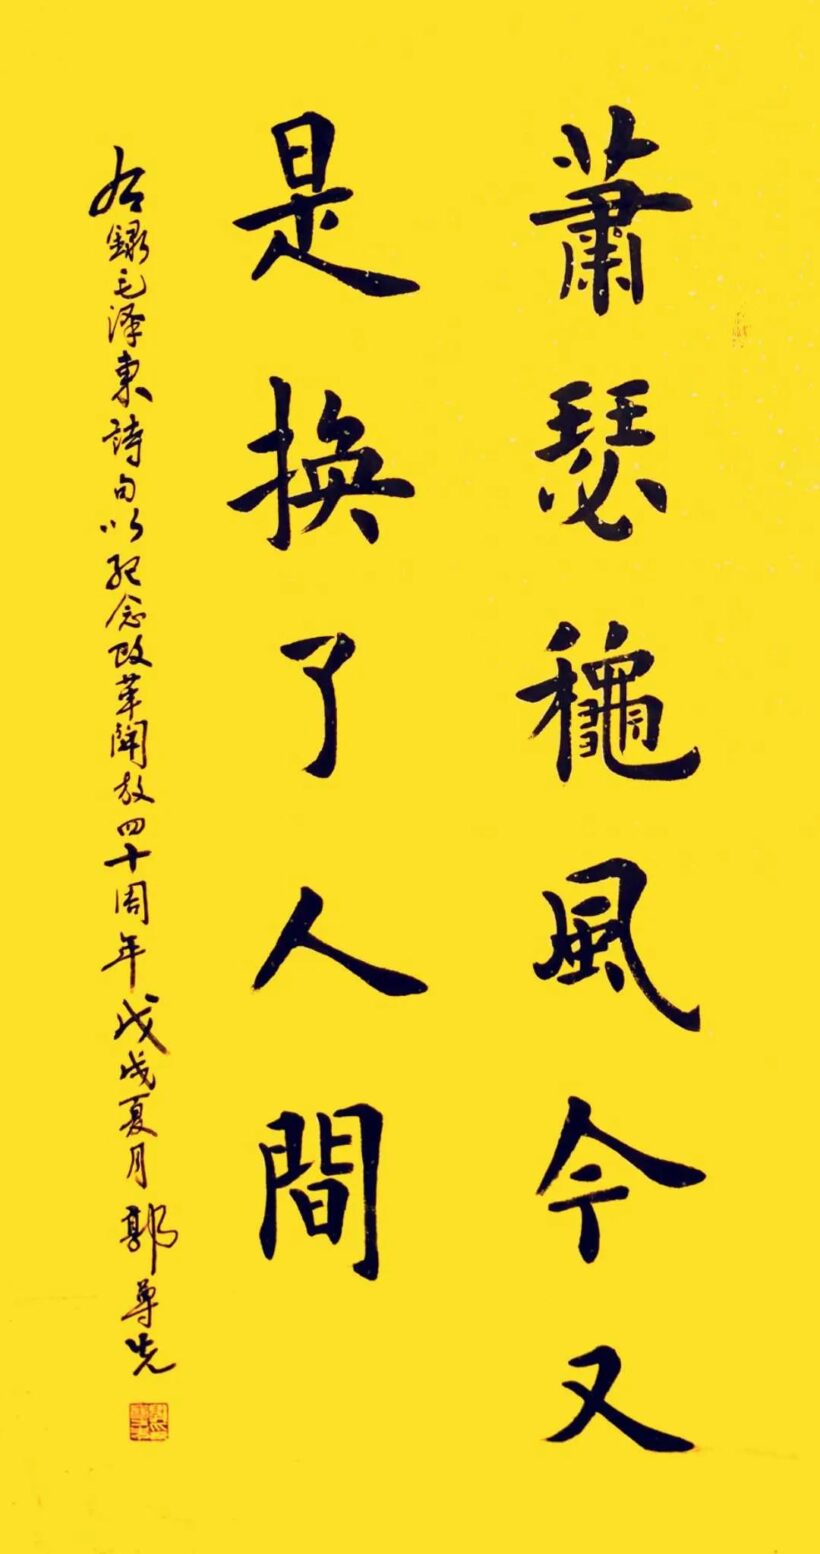 蕭瑟龝風今又
是換了人間
右錄毛泽東詩句以紀念改革開放四十周年戊戌夏月郭尊先